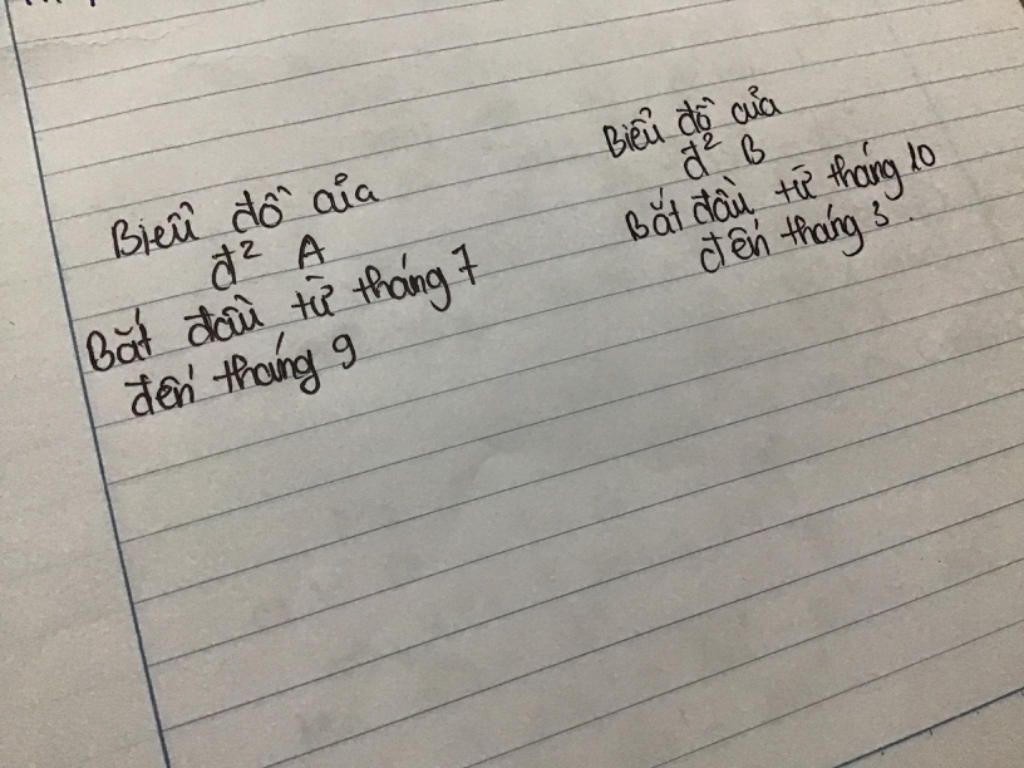 Biểu đồ của
đ² A
Bắt đầu từ tháng 7
đến tháng 9
Biểu đồ của
đ² B
Bắt đầu từ tháng 10
đến tháng 3.